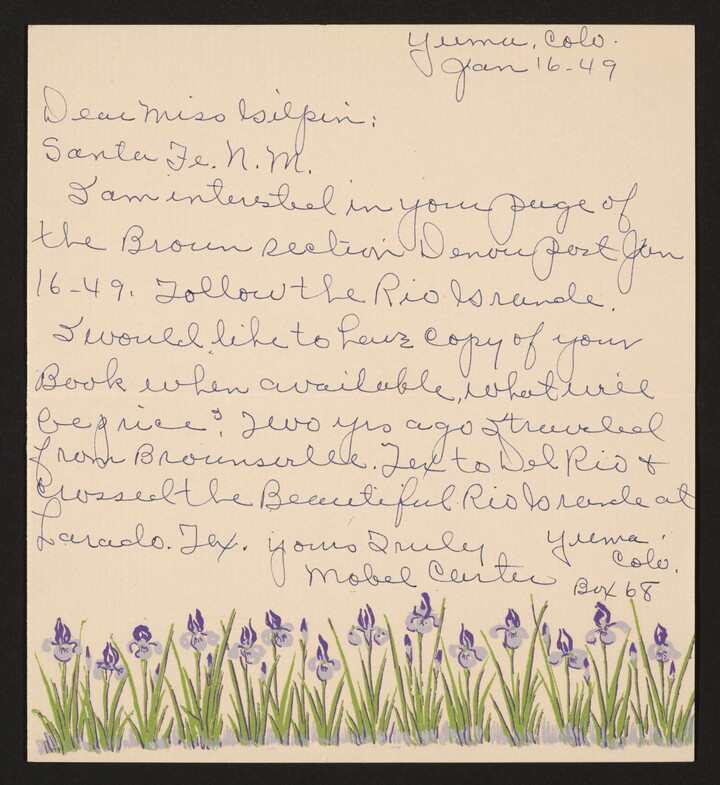 Yuma, Colo.
Jan 16-49
Dear Miss Gilpin:
Santa Fe. N. M.
I am interested in your page of
the Broun section Denver post Jan
16-49. Follow the Rio Grande.
I would like to have copy of your
Book when available, what will
be price? Two yrs ago I traveled
from Brounsville. Tex to Del Rio &
Crossed the Beautiful Rio Grande at
Larado. Tex. yours Truly
Mabel Carter
Yuma
Colo.
Box 68